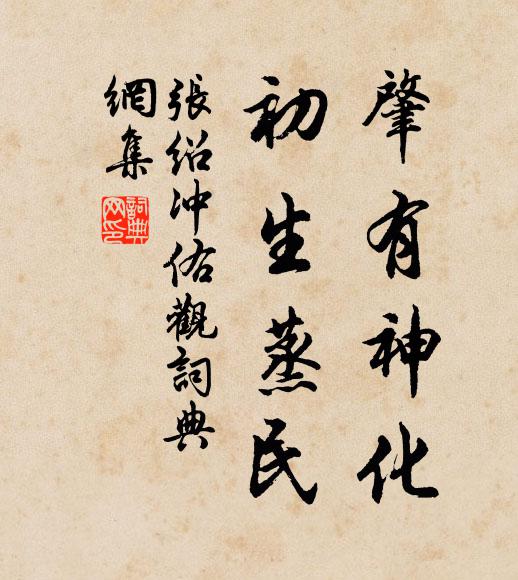 肇有神化
初生蒸民
張紹沖佑觀詞典
網集
詞典网印